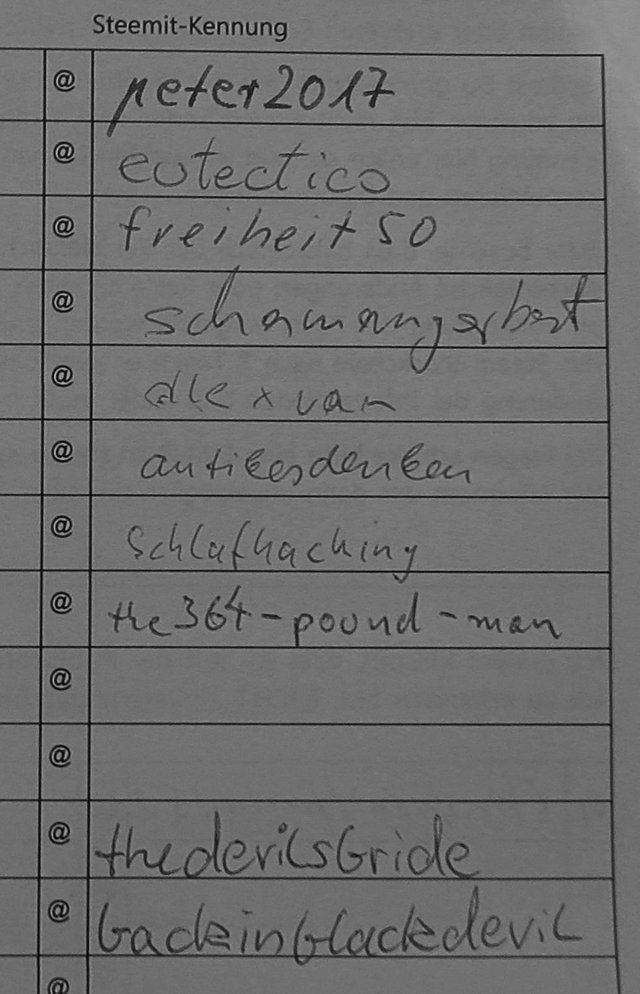 Steemit-Kennung
@ peter2017
@ eutectico
@ freiheit50
@ schamanngerbert
@ alexvan
@ antikesdenken
@ schlafhacking
@ the364-pound-man
@
@
@ thedevilsbride
@ backinblackdevil
@